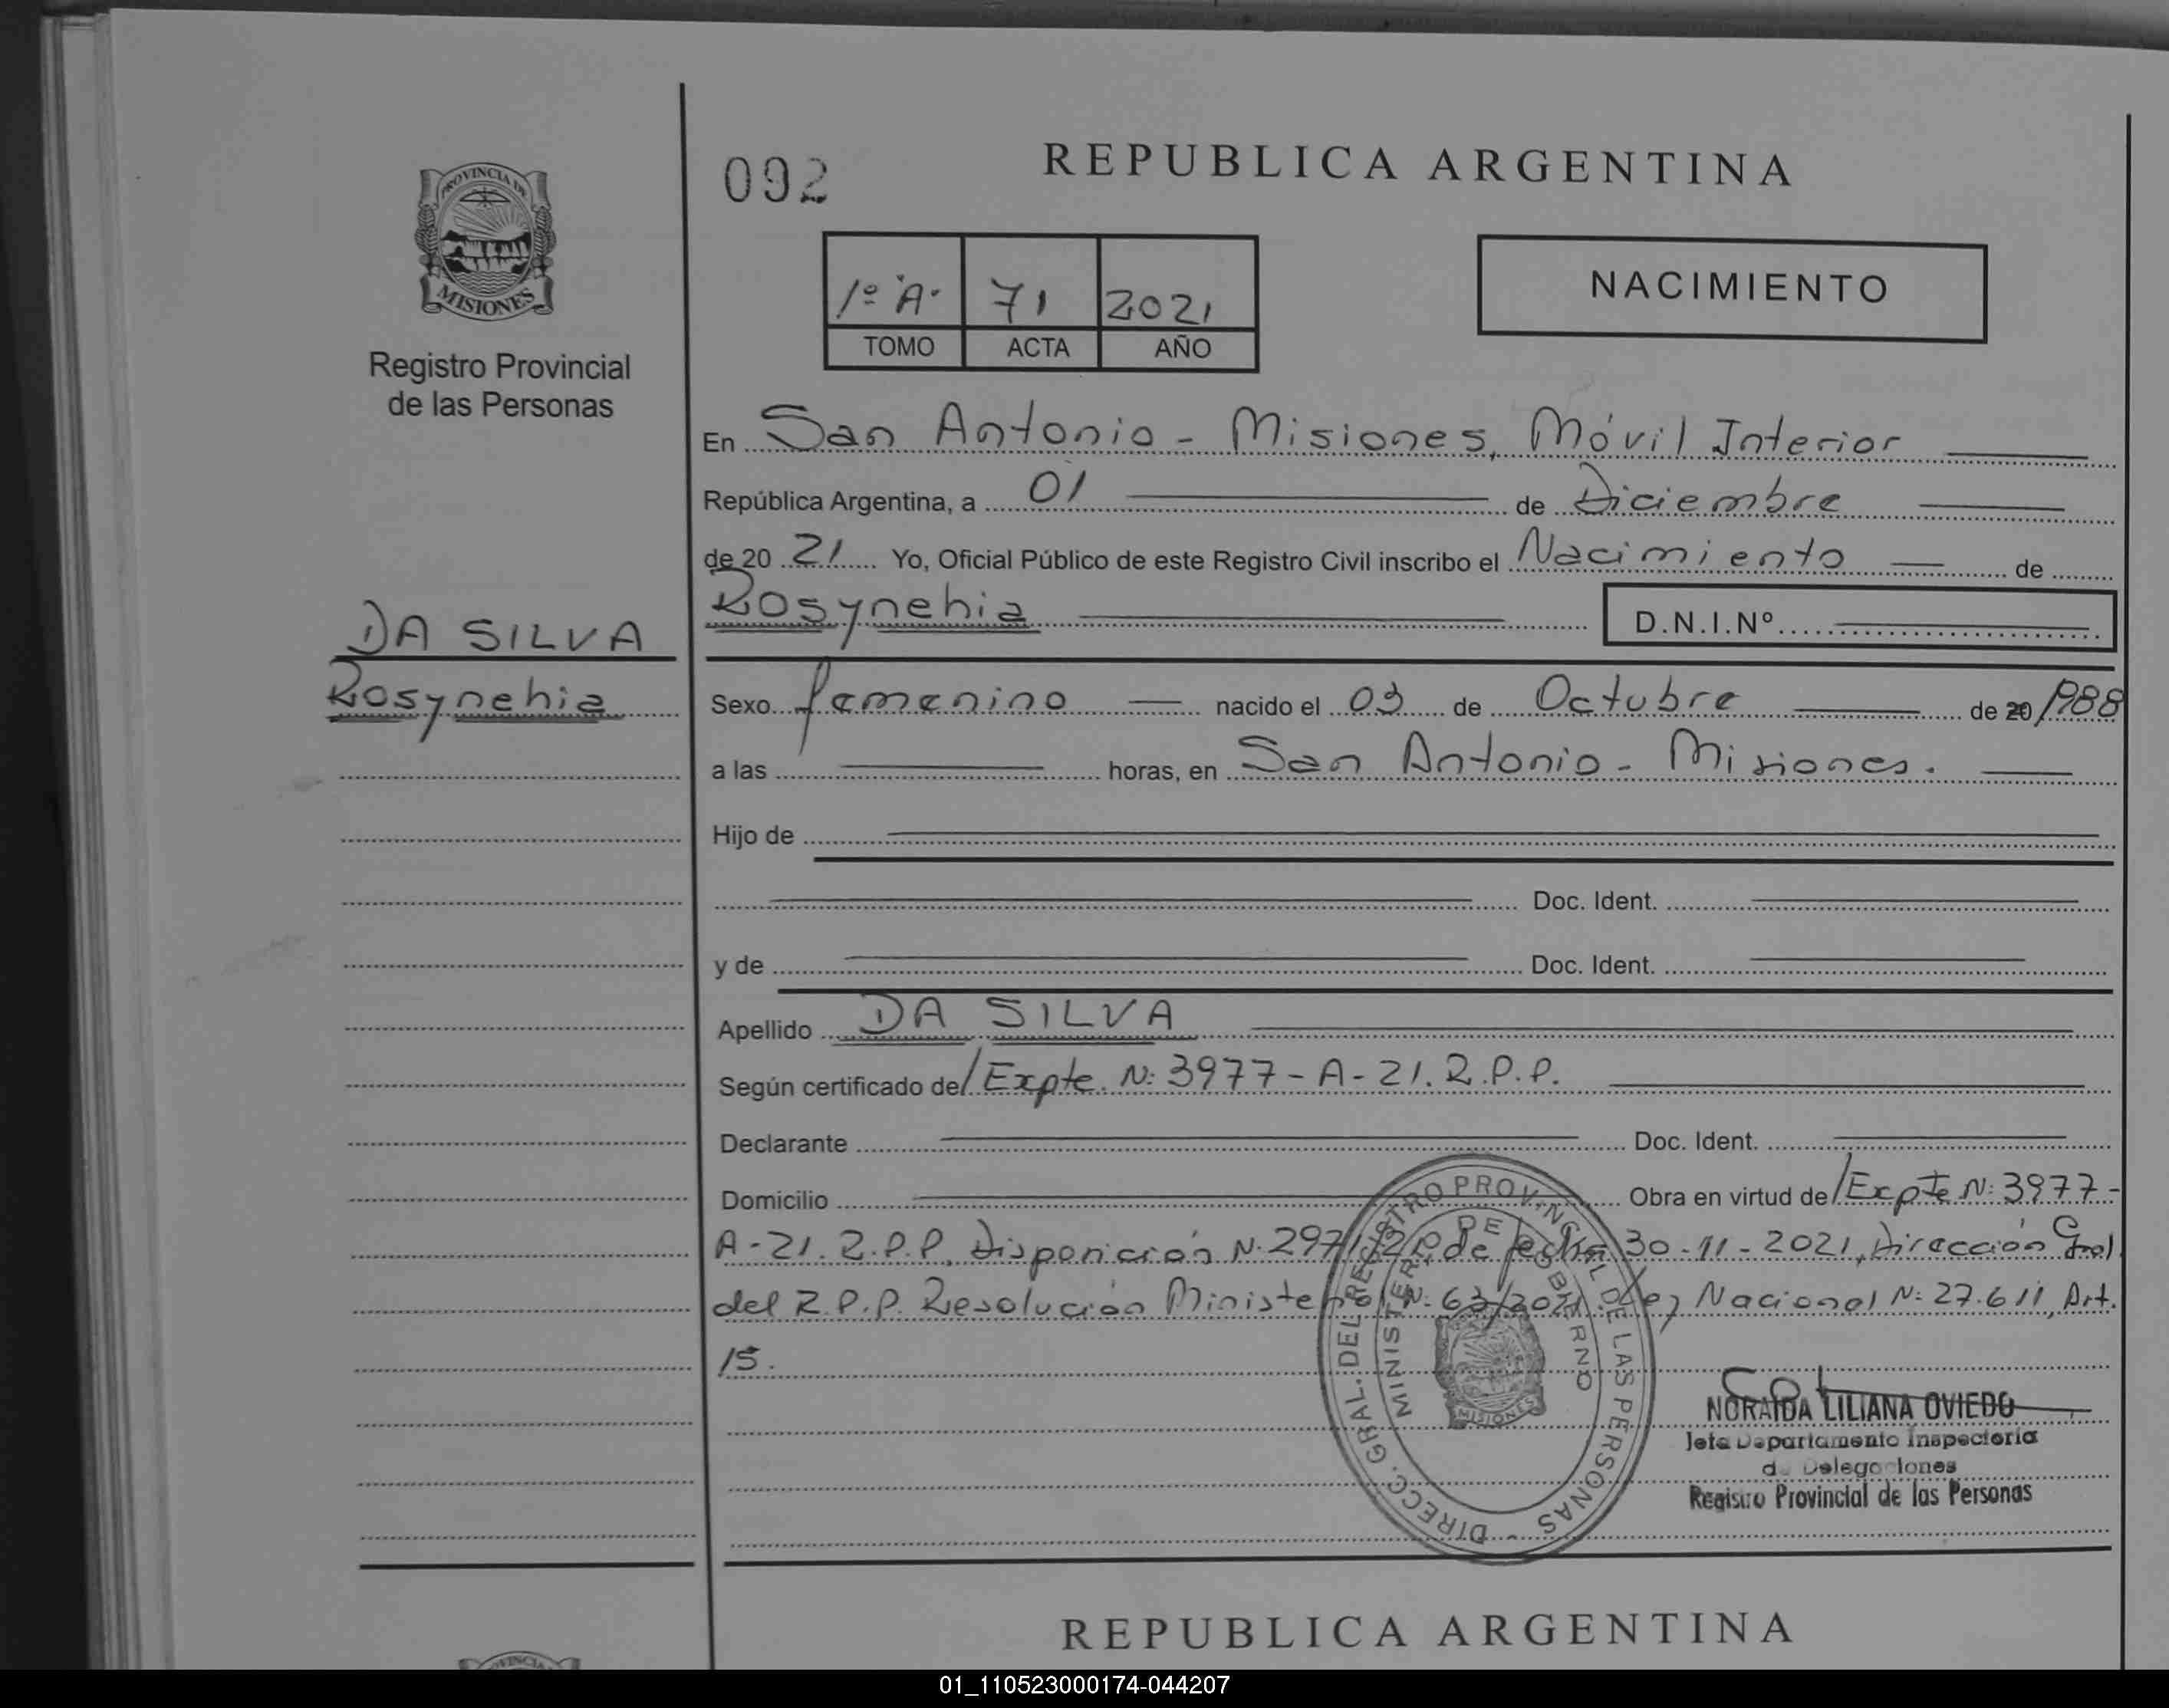 PROVINCIA DE
MISIONES
Registro Provincial
de las Personas
DA SILVA
Rosynehia
092
REPUBLICA ARGENTINA
1º "A" 71 2021
TOMO ACTA AÑO
NACIMIENTO
En San Antonio - Misiones, Móvil Interior
República Argentina, a 01 de Diciembre
de 20 21 Yo, Oficial Público de este Registro Civil inscribo el Nacimiento de
Rosynehia D.N.I.Nº
Sexo femenino nacido el 03 de Octubre de 20/1988
a las horas, en San Antonio - Misiones.
Hijo de
Doc. Ident.
y de Doc. Ident.
Apellido DA SILVA
Según certificado de/Expte. N: 3977-A-21.R.P.P.
Declarante Doc. Ident.
Domicilio Obra en virtud de/Expte N: 3977-
A-21.R.P.P, Disposición N: 2971/21, de fecha 30-11-2021, Dirección Gral
del R.P.P. Resolución Ministerial N: 63/2021. Ley Nacional N: 27.611, Art.
15.
DIRECC. GRAL. DEL REGISTRO PROVINCIAL DE LAS PERSONAS -
MINISTERIO DE GOBIERNO
MISIONES
NORAIDA LILIANA OVIEDO
Jefa Departamento Inspectoria
de Delegaciones
Registro Provincial de las Personas
REPUBLICA ARGENTINA
PROVINCIA
01_110523000174-044207